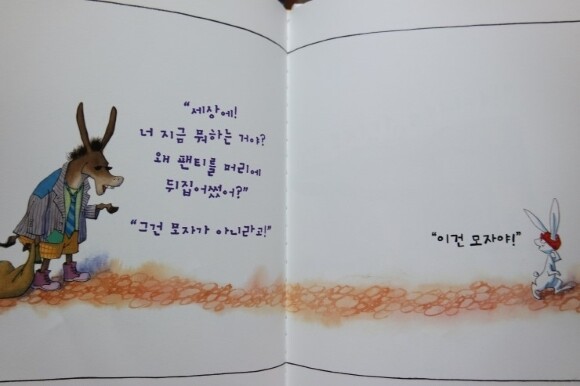 “세상에!
너 지금 뭐하는 거야?
왜 팬티를 머리에
뒤집어썼어?”
“그건 모자가 아니라고!”
“이건 모자야!”